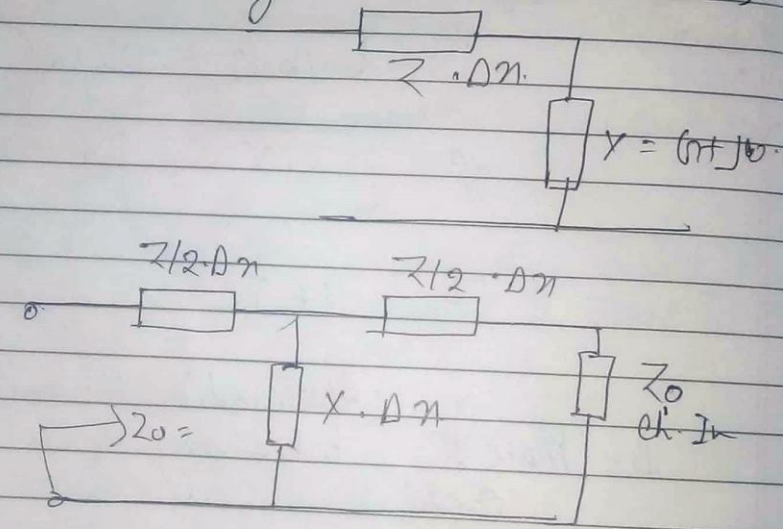 Z · Δx
Y = G+jb.
Z/2·Δx
Z/2 ·Δx
Y · Δx
Z0
Z0 =